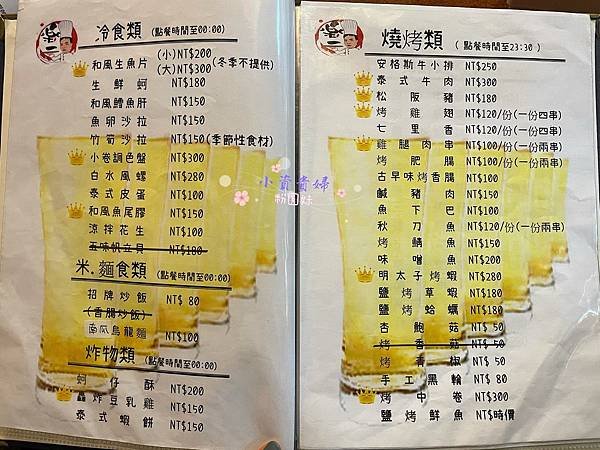 冷食類 (點餐時間至00:00)
和風生魚片 (小)NT$200
(大)NT$300 (冬季不提供)
生鮮蚵 NT$180
和風鱈魚肝 NT$150
魚卵沙拉 NT$150
竹筍沙拉 NT$150(季節性食材)
小卷調色盤 NT$300
白水風螺 NT$280
泰式皮蛋 NT$100
和風魚尾膠 NT$150
涼拌花生 NT$100
五味帆立貝 NT$180
米.麵食類 (點餐時間至00:00)
招牌炒飯 NT$ 80
(香腸炒飯)
南瓜烏龍麵 NT$100
炸物類 (點餐時間至00:00)
蚵仔酥 NT$200
轟炸豆乳雞 NT$150
泰式蝦餅 NT$150
燒烤類 (點餐時間至23:30)
安格斯牛小排 NT$250
泰式牛肉 NT$300
松阪豬 NT$180
烤雞翅 NT$120/份(一份四串)
七里香 NT$120/份(一份四串)
雞腿肉串 NT$100/份(一份兩串)
烤肥腸 NT$100/份(一份兩串)
古早味烤香腸 NT$100
鹹豬肉 NT$150
魚下巴 NT$100
秋刀魚 NT$120/份(一份兩串)
烤鯖魚 NT$150
味噌魚 NT$200
明太子烤蝦 NT$280
鹽烤草蝦 NT$180
鹽烤蛤蠣 NT$180
杏鮑菇 NT$ 50
烤香菇 NT$ 50
烤青椒 NT$ 50
手工黑輪 NT$ 80
烤中卷 NT$300
鹽烤鮮魚 NT$時價
小資貴婦
粉圓妹